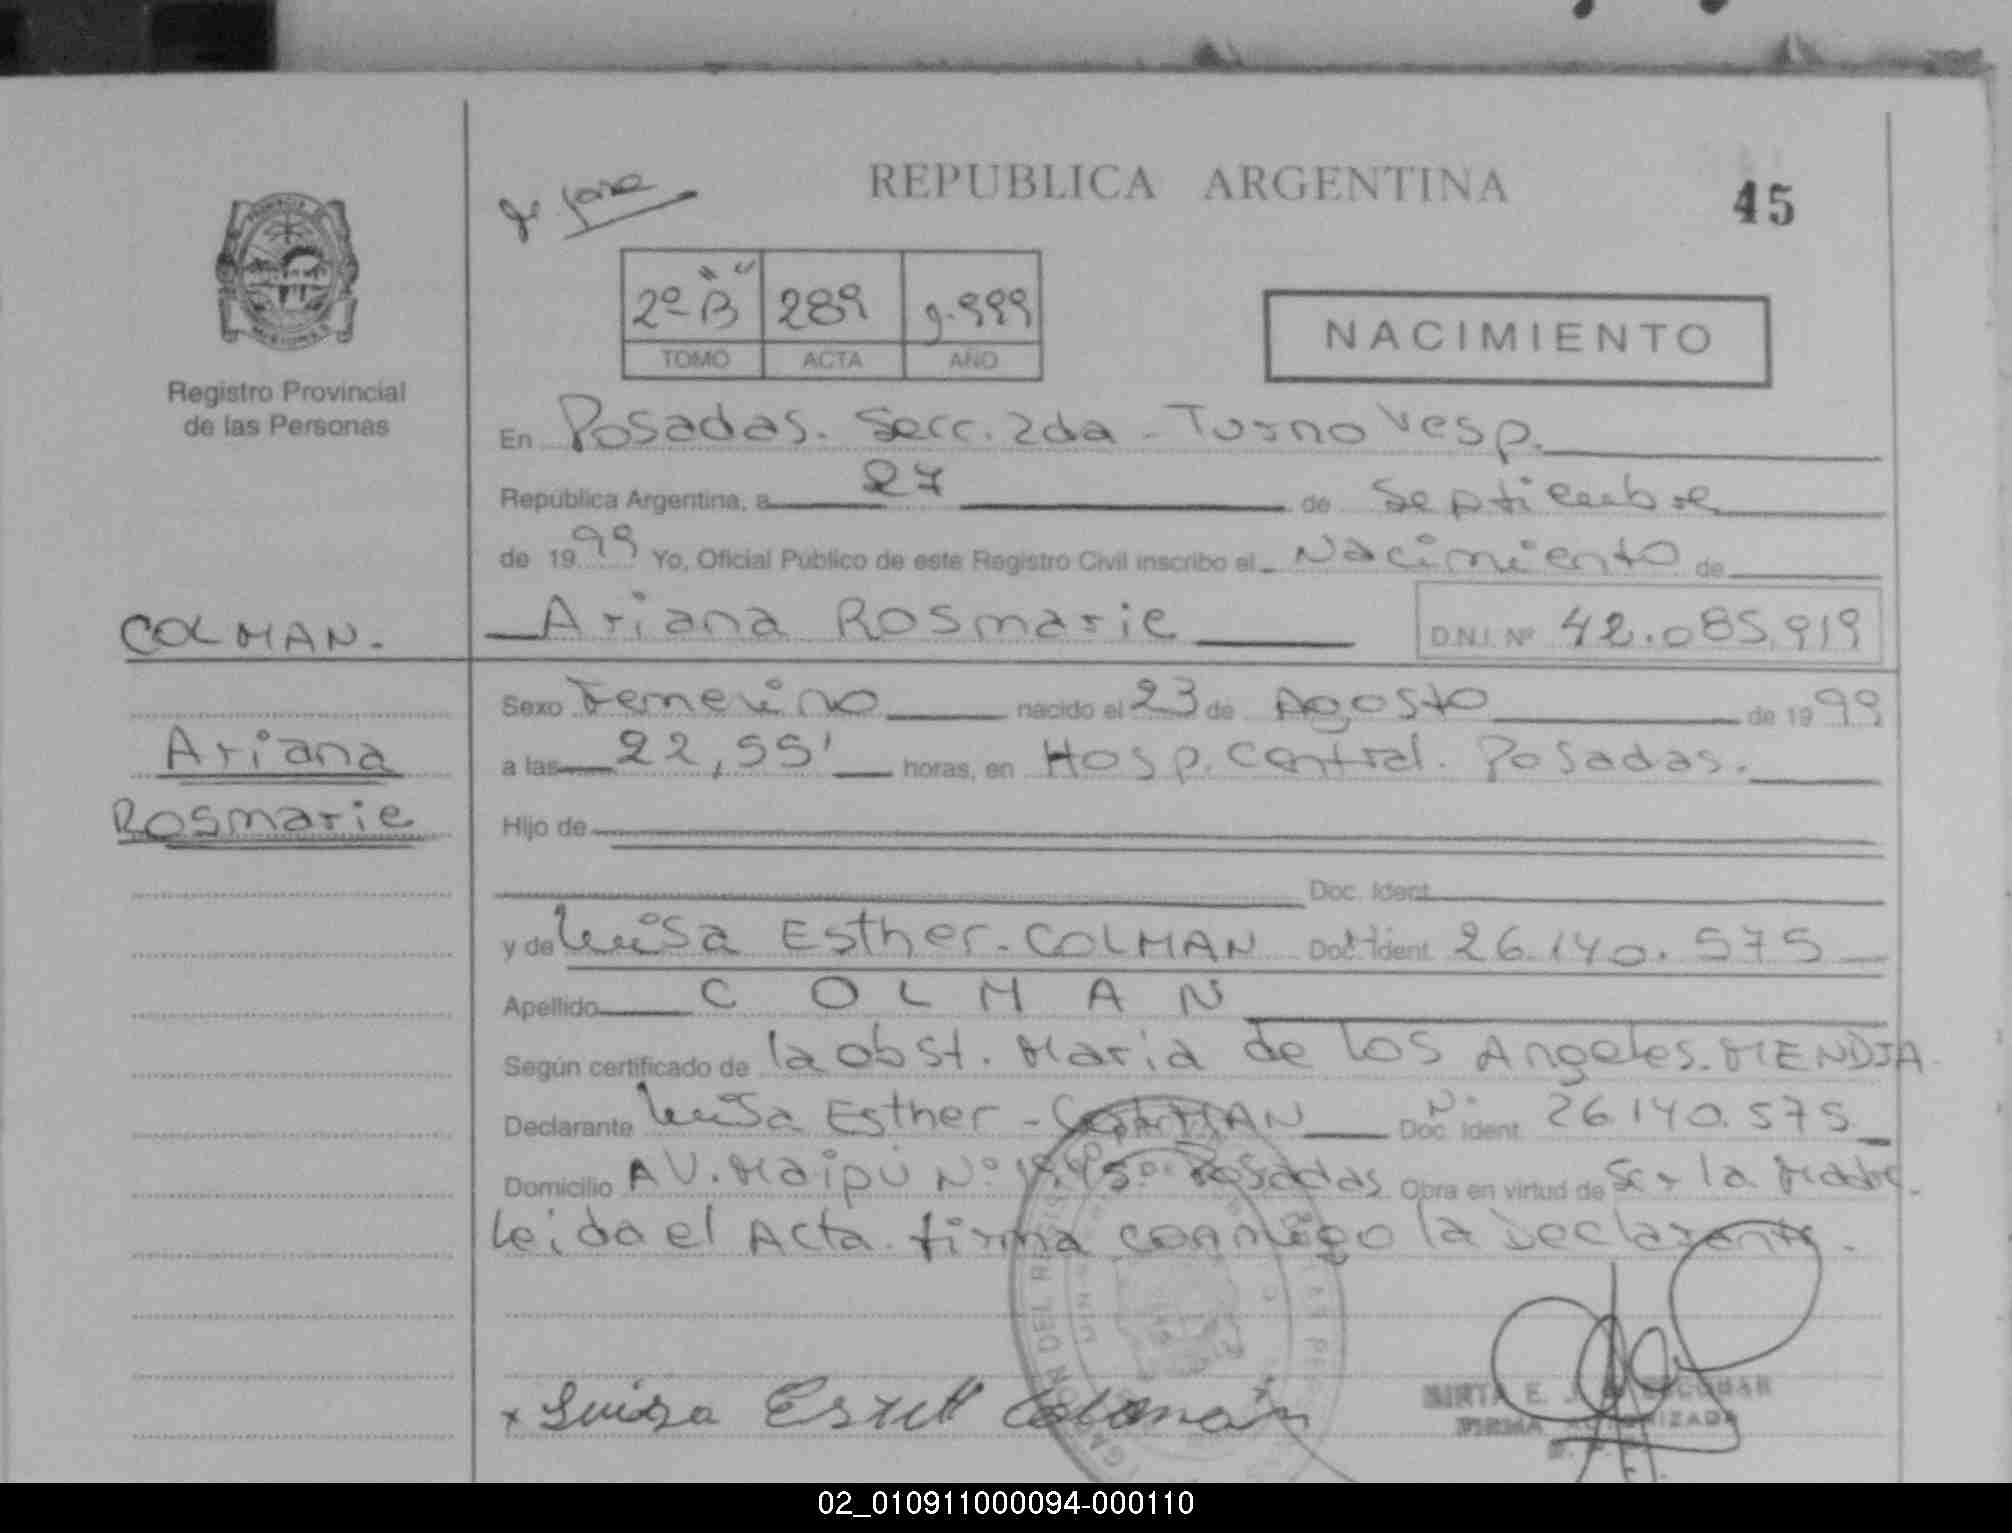 REPUBLICA ARGENTINA
45
2º "B" 289 1.999
TOMO ACTA AÑO
NACIMIENTO
Registro Provincial
de las Personas
En Posadas. Secc. 2da - Turno Vesp.
República Argentina, a 27 de Septiembre
de 1999 Yo, Oficial Público de este Registro Civil inscribo el Nacimiento de
COLMAN.
Ariana Rosmarie D.N.I. Nº 42.085.919
Sexo Femenino nacido el 23 de Agosto de 1999
Ariana
a las 22,55' horas, en Hosp. Central. Posadas.
Rosmarie
Hijo de
Doc. Ident.
y de Luisa Esther - COLMAN Doc. Ident. 26.140.575
Apellido COLMAN
Según certificado de la obst. Maria de los Angeles. MENDIA
Declarante Luisa Esther - COLMAN Doc. Ident. Nº 26.140.575
Domicilio AV. Maipú Nº Posadas Obra en virtud de Ser la Madre.
Leida el Acta firma conmigo la Declarante.
x Luisa Colman
MIRTA E. ESCOBAR
FIRMA AUTORIZADA
02_010911000094-000110